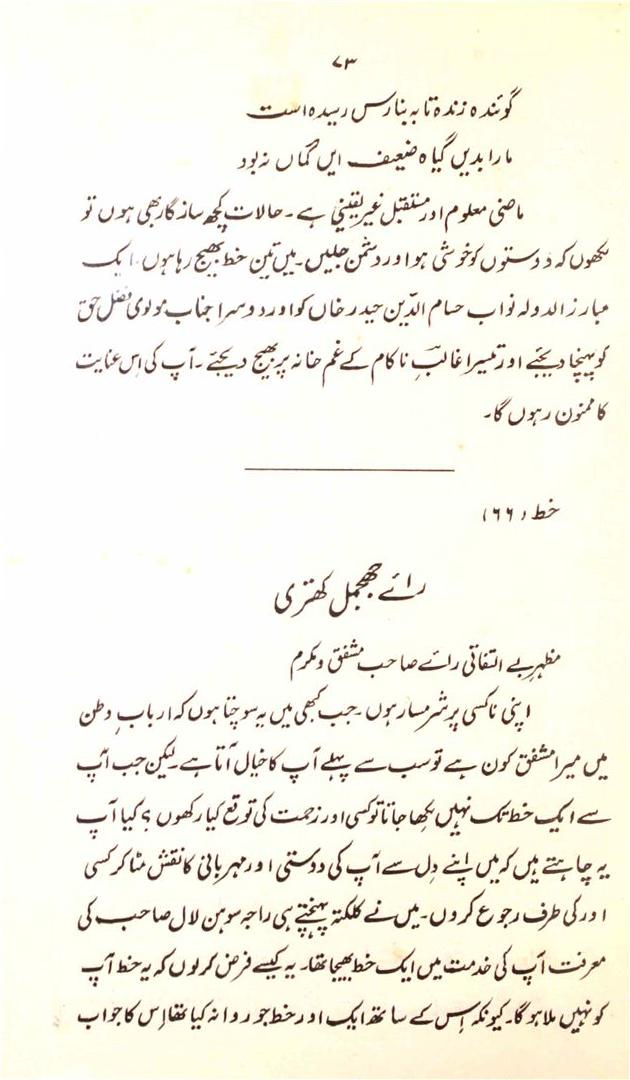 ۷۳
گوئندہ زندہ تا بہ بنارس رسیدہ است
مارا بدیں گیاہ ضعیف ایں گماں نہ بود
ماضی معلوم اور مستقبل غیر یقینی ہے۔ حالات کچھ سازگار بھی ہوں تو
لکھوں کہ دوستوں کو خوشی ہو اور دشمن جلیں۔ میں تین خط بھیج رہا ہوں۔ ایک
مبارز الدولہ نواب حسام الدّین حیدر خاں کو اور دوسرا جناب مولوی فضل حق
کو پہنچا دیجئے اور تیسرا غالبِ ناکام کے غم خانہ پر بھیج دیجئے۔ آپ کی اِس عنایت
کا ممنون رہوں گا۔
خط (۶۶)
رائے چھجمل کھتری
مظہرِ بے التفاتی رائے صاحب مشفق و مکرم
اپنی ناکسی پر شرمسار ہوں۔ جب کبھی میں یہ سوچتا ہوں کہ اربابِ وطن
میں میرا مشفق کون ہے تو سب سے پہلے آپ کا خیال آتا ہے۔ لیکن جب آپ
سے ایک خط تک نہیں لکھا جاتا تو کسی اور زحمت کی توقع کیا رکھوں؟ کیا آپ
یہ چاہتے ہیں کہ میں اپنے دِل سے آپ کی دوستی اور مہربانی کا نقش مٹا کر کسی
اور کی طرف رجوع کروں۔ میں نے کلکتہ پہنچتے ہی راجہ سوہن لال صاحب کی
معرفت آپ کی خدمت میں ایک خط بھیجا تھا۔ یہ کیسے فرض کر لوں کہ یہ خط آپ
کو نہیں ملا ہوگا۔ کیونکہ اِس کے ساتھ ایک اور خط جو روانہ کیا تھا اِس کا جواب